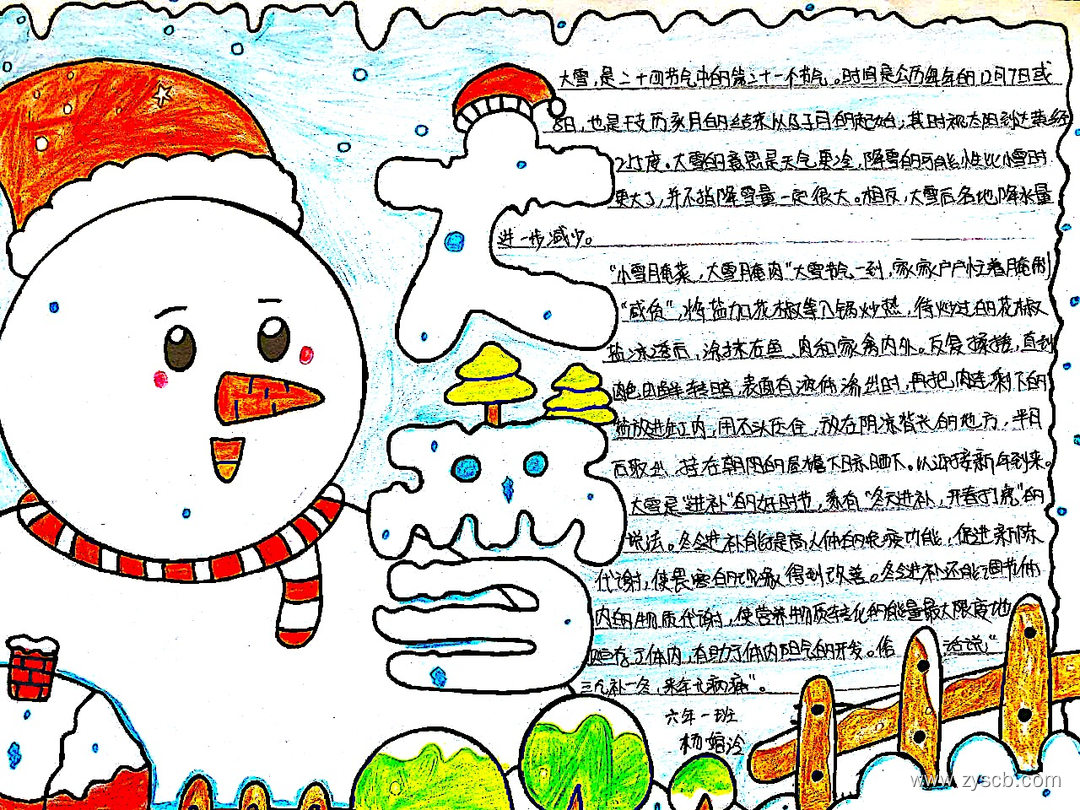 大雪
大雪,是二十四节气中的第二十一个节气。时间是公历每年的12月7日或
8日,也是干支历亥月的结束以及子月的起始;其时视太阳到达黄经
225度。大雪的意思是天气更冷,降雪的可能性比小雪时
更大了,并不指降雪量一定很大。相反,大雪后各地降水量
进一步减少。
"小雪腌菜,大雪腌肉"大雪节气一到,家家户户忙着腌制
"咸货",将盐加花椒等入锅炒熟,待炒过的花椒
盐凉透后,涂抹在鱼、肉和家禽内外。反复揉搓,直到
肉色由鲜转暗,表面有液体渗出时,再把肉连剩下的
盐放进缸内,用石头压住,放在阴凉背光的地方,半月
后取出,挂在朝阳的屋檐下晾晒干。以迎接新年到来。
大雪是"进补"的好时节,素有"冬天进补,开春打虎"的
说法。冬令进补能提高人体的免疫功能,促进新陈
代谢,使畏寒的现象得到改善。冬令进补还能调节体
内的物质代谢,使营养物质转化的能量最大限度地
贮存于体内,有助于体内阳气的升发。俗话说"
三九补一冬,来年无病痛"。
六年一班
杨
www.zyscb.com